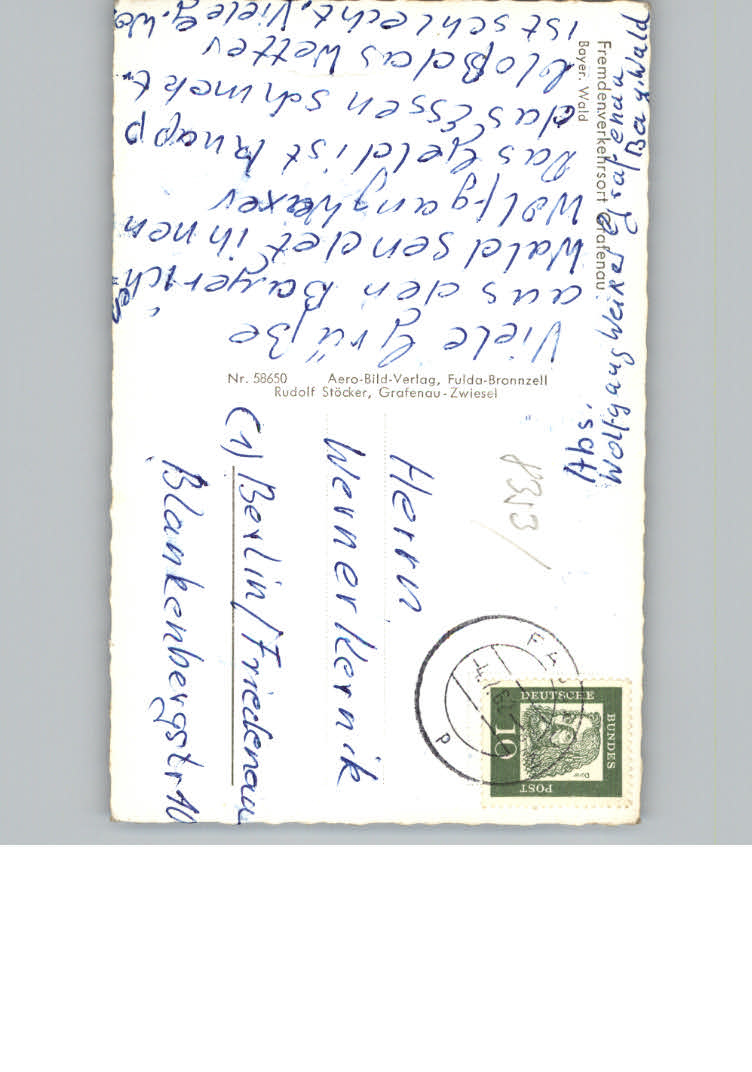 Fremdenverkehrsort Grafenau
Bayer. Wald
Abs.
Wolfgang Haxer Grafenau
Viele Grüße
aus den Bayerisch
en
Wald sendet ihnen
Wolfgang Haxer
Das Geld ist knapp
das Essen schmekt
bloß das Wetter
ist schlecht. Viele G. Wo
Nr. 58650 Aero-Bild-Verlag, Fulda-Bronnzell
Rudolf Stöcker, Grafenau-Zwiesel
8313
Herrn
Werner Kernik
(1) Berlin/Friedenau
Blankenbergstr 10
DEUTSCHE
BUNDES
POST
10
Dürer